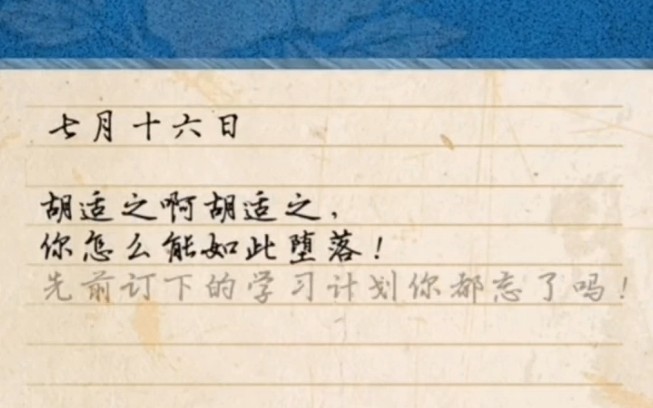 七月十六日
胡适之啊胡适之，
你怎么能如此堕落！
先前订下的学习计划你都忘了吗！